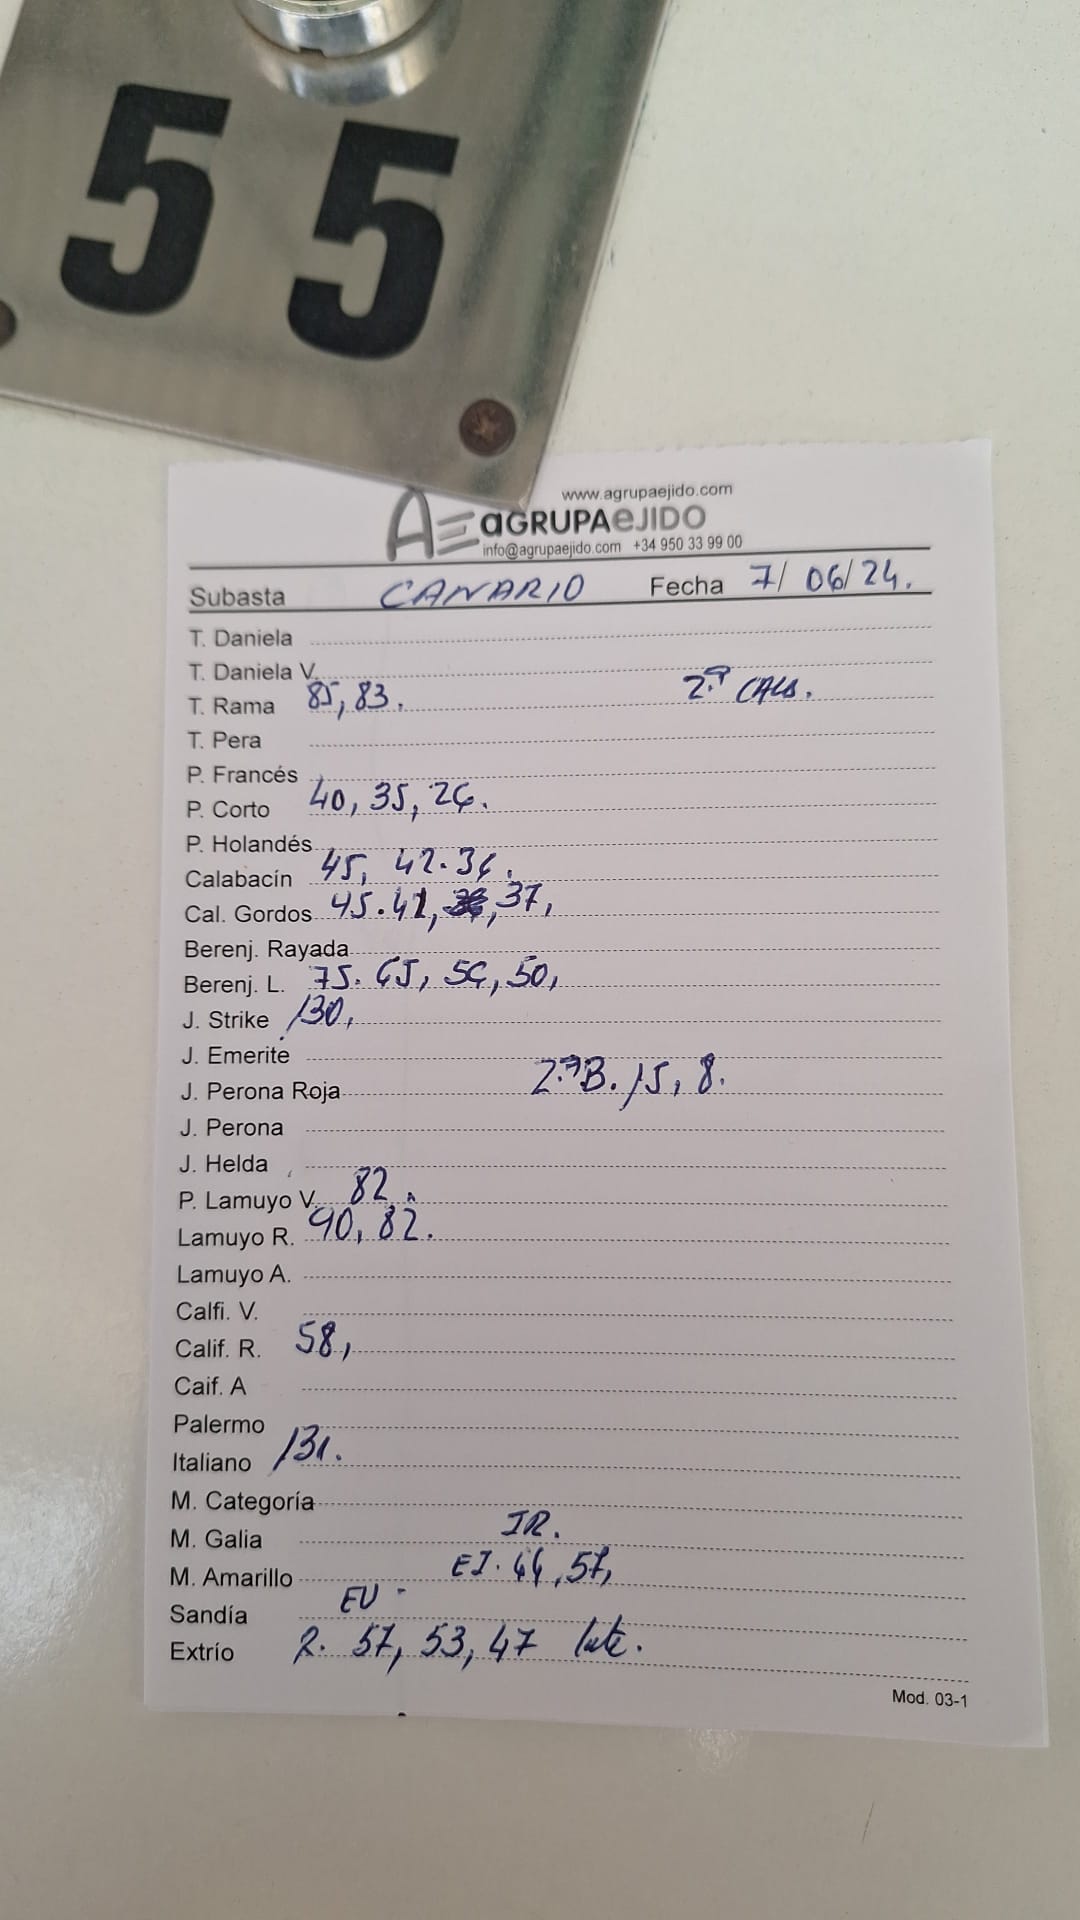 55
www.agrupaejido.com
AE aGRUPAeJIDO
info@agrupaejido.com +34 950 33 99 00
Subasta CANARIO Fecha 7/ 06/24.
T. Daniela
T. Daniela V.
T. Rama 85, 83. 2.ª CALA.
T. Pera
P. Francés
P. Corto 40, 35, 26.
P. Holandés
Calabacín 45, 42. 36.
Cal. Gordos 45. 41, 37,
Berenj. Rayada
Berenj. L. 75. 65, 56, 50,
J. Strike 130,
J. Emerite
J. Perona Roja 2.ªB. 15, 8.
J. Perona
J. Helda
P. Lamuyo V. 82.
Lamuyo R. 90, 82.
Lamuyo A.
Calfi. V.
Calif. R. 58,
Caif. A
Palermo
Italiano 131.
M. Categoría
M. Galia IR.
M. Amarillo EJ. 44, 57,
Sandía EU -
Extrío R. 57, 53, 47
Mod. 03-1